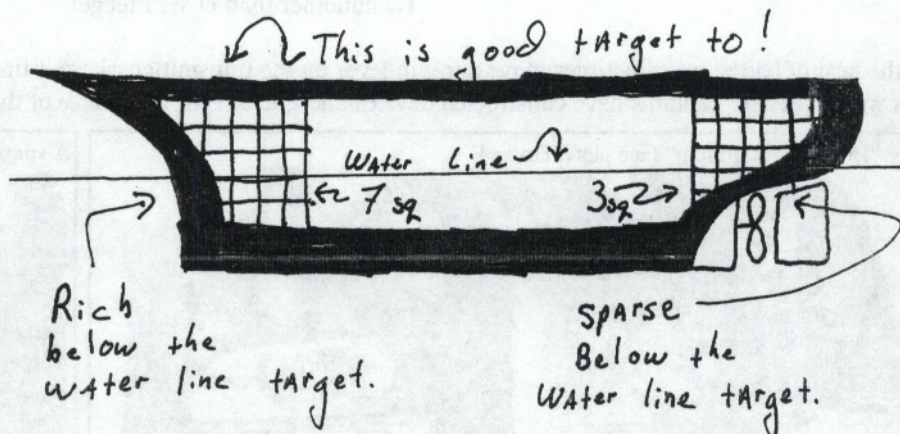 This is good tArget to!
WAter Line
7 sq
3 sq
Rich
below the
WAter line tArget.
SpArse
Below the
WAter line tArget.